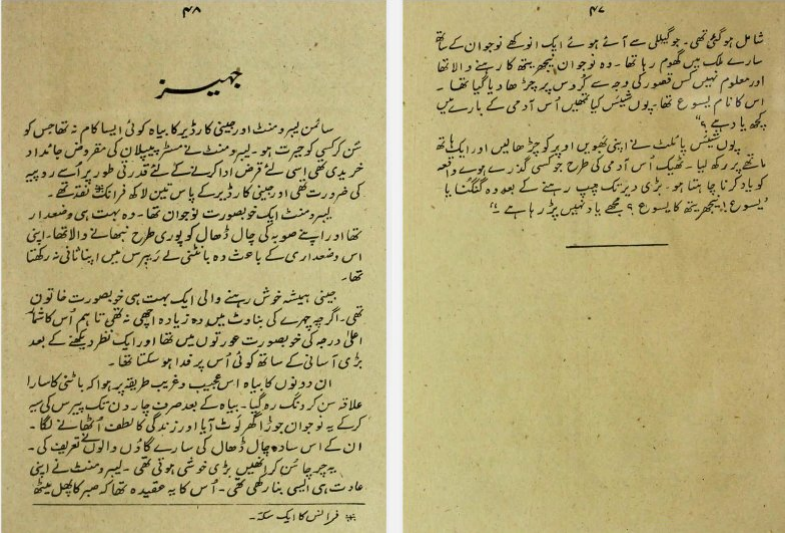 ۴۷
شامل ہو گئی تھی۔ جو گیلی سے آئے ہوئے ایک انوکھے نوجوان کے ساتھ
سارے ملک میں گھوم رہا تھا۔ وہ نوجوان نیجھریتھ کا رہنے والا تھا
اور معلوم نہیں کس قصور کی وجہ سے کروس پر چڑھا دیا گیا تھا۔
اس کا نام یسوع تھا۔ پون شیئس کیا تمھیں اُس آدمی کے بارے میں
کچھ یاد ہے ؟"
پون شیئس پائلٹ نے اپنی بھویں اوپر کو چڑھا لیں اور ایک ہاتھ
ماتھے پر رکھ لیا۔ ٹھیک اُس آدمی کی طرح جو کسی گذرے ہوے واقعہ
کو یاد کرنا چاہتا ہو۔ بڑی دیر تک چپ رہنے کے بعد وہ گنگنا یا
"یسوع! نیجھریتھ کا یسوع ؟ مجھے یاد نہیں پڑ رہا ہے ۔"
۴۸
جہیز
سائمن لیبرومنٹ اور جینی کارڈیر کا بیاہ کوئی ایسا کام نہ تھا جس کو
سُن کر کسی کو حیرت ہو۔ لیبرومنٹ نے مسٹر پیپلان کی مقروض جائداد
خریدی تھی اسی لئے قرض ادا کرنے کے لئے قدرتی طور پر اُسے روپیہ
کی ضرورت تھی اور جینی کارڈیر کے پاس تین لاکھ فرانک※ نقد تھے۔
لیبرومنٹ ایک خوبصورت نوجوان تھا۔ وہ بہت ہی وضعدار
تھا اور اپنے صوبہ کی چال ڈھال کو پوری طرح نبھانے والا تھا۔ اپنی
اس وضعداری کے باعث وہ بانٹنی لے ریپیرس میں اپنا ثانی نہ رکھتا
تھا۔
جینی ہمیشہ خوش رہنے والی ایک بہت ہی خوبصورت خاتون
تھی۔ اگرچہ چہرے کی بناوٹ میں وہ زیادہ اچھی نہ تھی تا ہم اُس کا شمار
اعلیٰ درجہ کی خوبصورت عورتوں میں تھا اور ایک نظر دیکھنے کے بعد
بڑی آسانی کے ساتھ کوئی اُس پر فدا ہو سکتا تھا۔
ان دونوں کا بیاہ اس عجیب و غریب طریقہ پر ہوا کہ بانٹنی کا سارا
علاقہ سن کر دنگ رہ گیا۔ بیاہ کے بعد صرف چار دن تک پیرس کی سیر
کر کے یہ نوجوان جوڑا گھر لوٹ آیا اور زندگی کا لطف اُٹھانے لگا۔
ان کے اس سادہ چال ڈھال کی سارے گاؤں والوں نے تعریف کی۔
یہ چرچا سُن کر انھیں بڑی خوشی ہوتی تھی۔ لیبرومنٹ نے اپنی
عادت ہی ایسی بنا رکھی تھی۔ اُس کا یہ عقیدہ تھا کہ صبر کا پھل میٹھا
※ فرانس کا ایک سکّہ۔